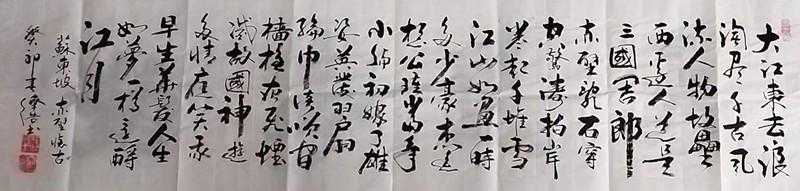 大江東去浪
淘盡千古風
流人物故壘
西邊人道是
三國周郎
赤壁亂石穿
空驚濤拍岸
卷起千堆雪
江山如畫一時
多少豪杰遙
想公瑾當年
小喬初嫁了雄
姿英發羽扇
綸巾談笑間
檣櫓灰飛煙
滅故國神遊
多情應笑我
早生華髮人生
如夢一樽還酹
江月
蘇東坡 赤壁懷古
癸卯